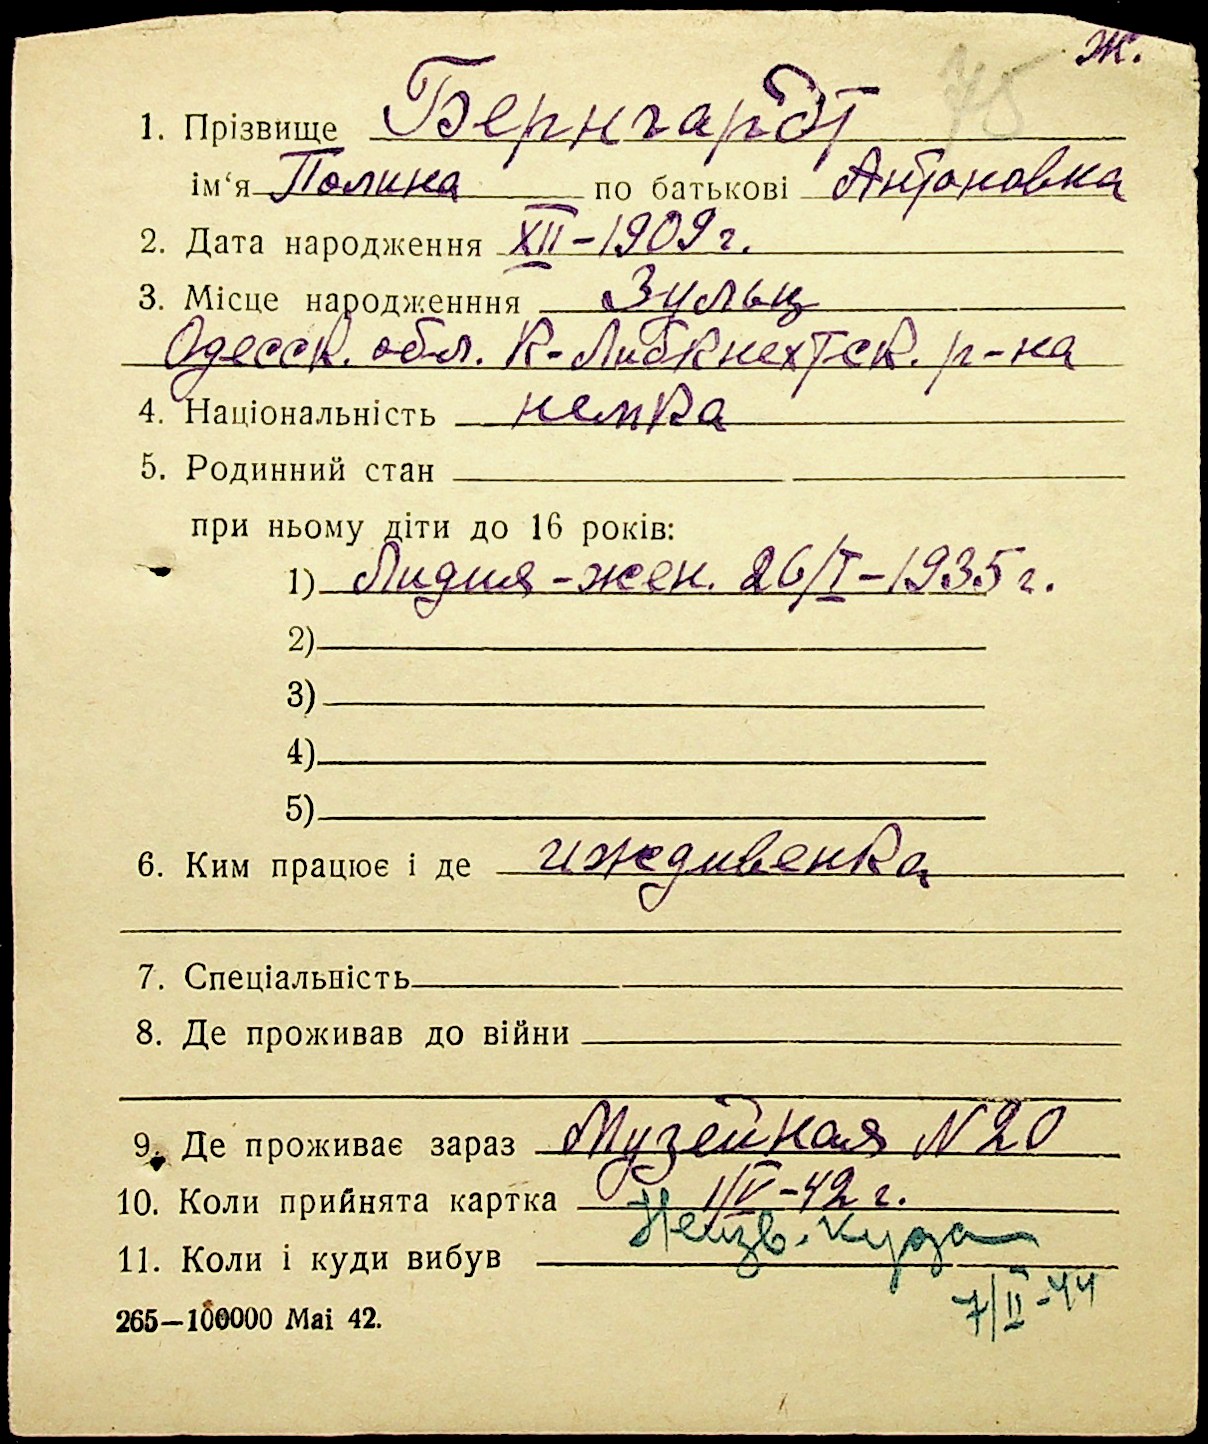 ж.
75
1. Прізвище Бернгардт
ім‘я Полина по батькові Антоновна
2. Дата народження XII – 1909 г.
3. Місце народженння Зульц
Одесск. обл. К-Либкнехтск. р-на
4. Національність немка
5. Родинний стан
при ньому діти до 16 років:
1) Лидия – жен. 26/I – 1935 г.
2)
3)
4)
5)
6. Ким працює і де иждивенка
7. Спеціальність
8. Де проживав до війни
9. Де проживає зараз Музейная N 20
10. Коли прийнята картка 1/V – 42 г.
11. Коли і куди вибув Неизв. куда
7/II - 44
265—100000 Маі 42.